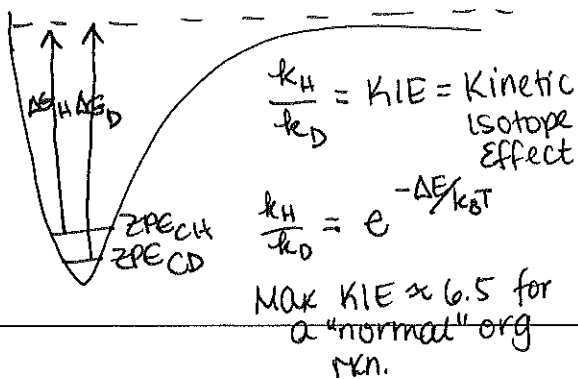 ΔE_H ΔE_D
ZPE_CH
ZPE_CD
k_H/k_D = KIE = Kinetic
Isotope
Effect
k_H/k_D = e^-ΔE/k_BT
Max KIE ≈ 6.5 for
a "normal" org
rxn.